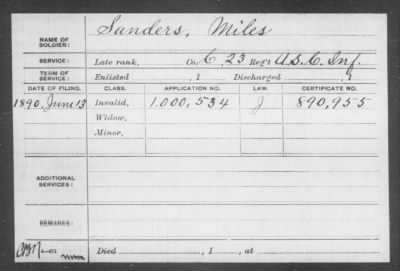 NAME OF SOLDIER: Sanders, Miles
SERVICE: Late rank, Co. C, 23 Reg't U.S.C. Inf.
TERM OF SERVICE: Enlisted , 1 Discharged , 1
DATE OF FILING. CLASS. APPLICATION NO. LAW. CERTIFICATE NO.
1890, June 13 Invalid, 1.000,534 J 890,955
Widow,
Minor,
ADDITIONAL SERVICES:
REMARKS:
Died , 1 , at